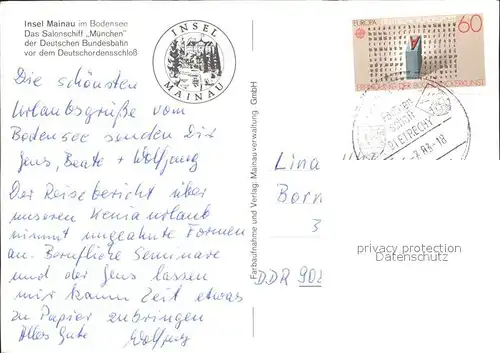 Insel Mainau im Bodensee
Das Salonschiff „München“
der Deutschen Bundesbahn
vor dem Deutschordensschloß
INSEL
MAINAU
Die schönsten
Urlaubsgrüße vom
Bodensee senden Dir
Jens, Beate + Wolfgang
Der Reisebericht über
unseren Keniaurlaub
nimmt ungeahnte Formen
an. Berufliche Seminare
und der Jens lassen
mir kaum Zeit etwas
zu Papier zu bringen
Alles Gute Wolfgang
Farbaufnahme und Verlag: Mainauverwaltung GmbH
EUROPA
60
DEUTSCHE BUNDESPOST
Lina
Born
3
DDR 902
privacy protection
Datenschutz